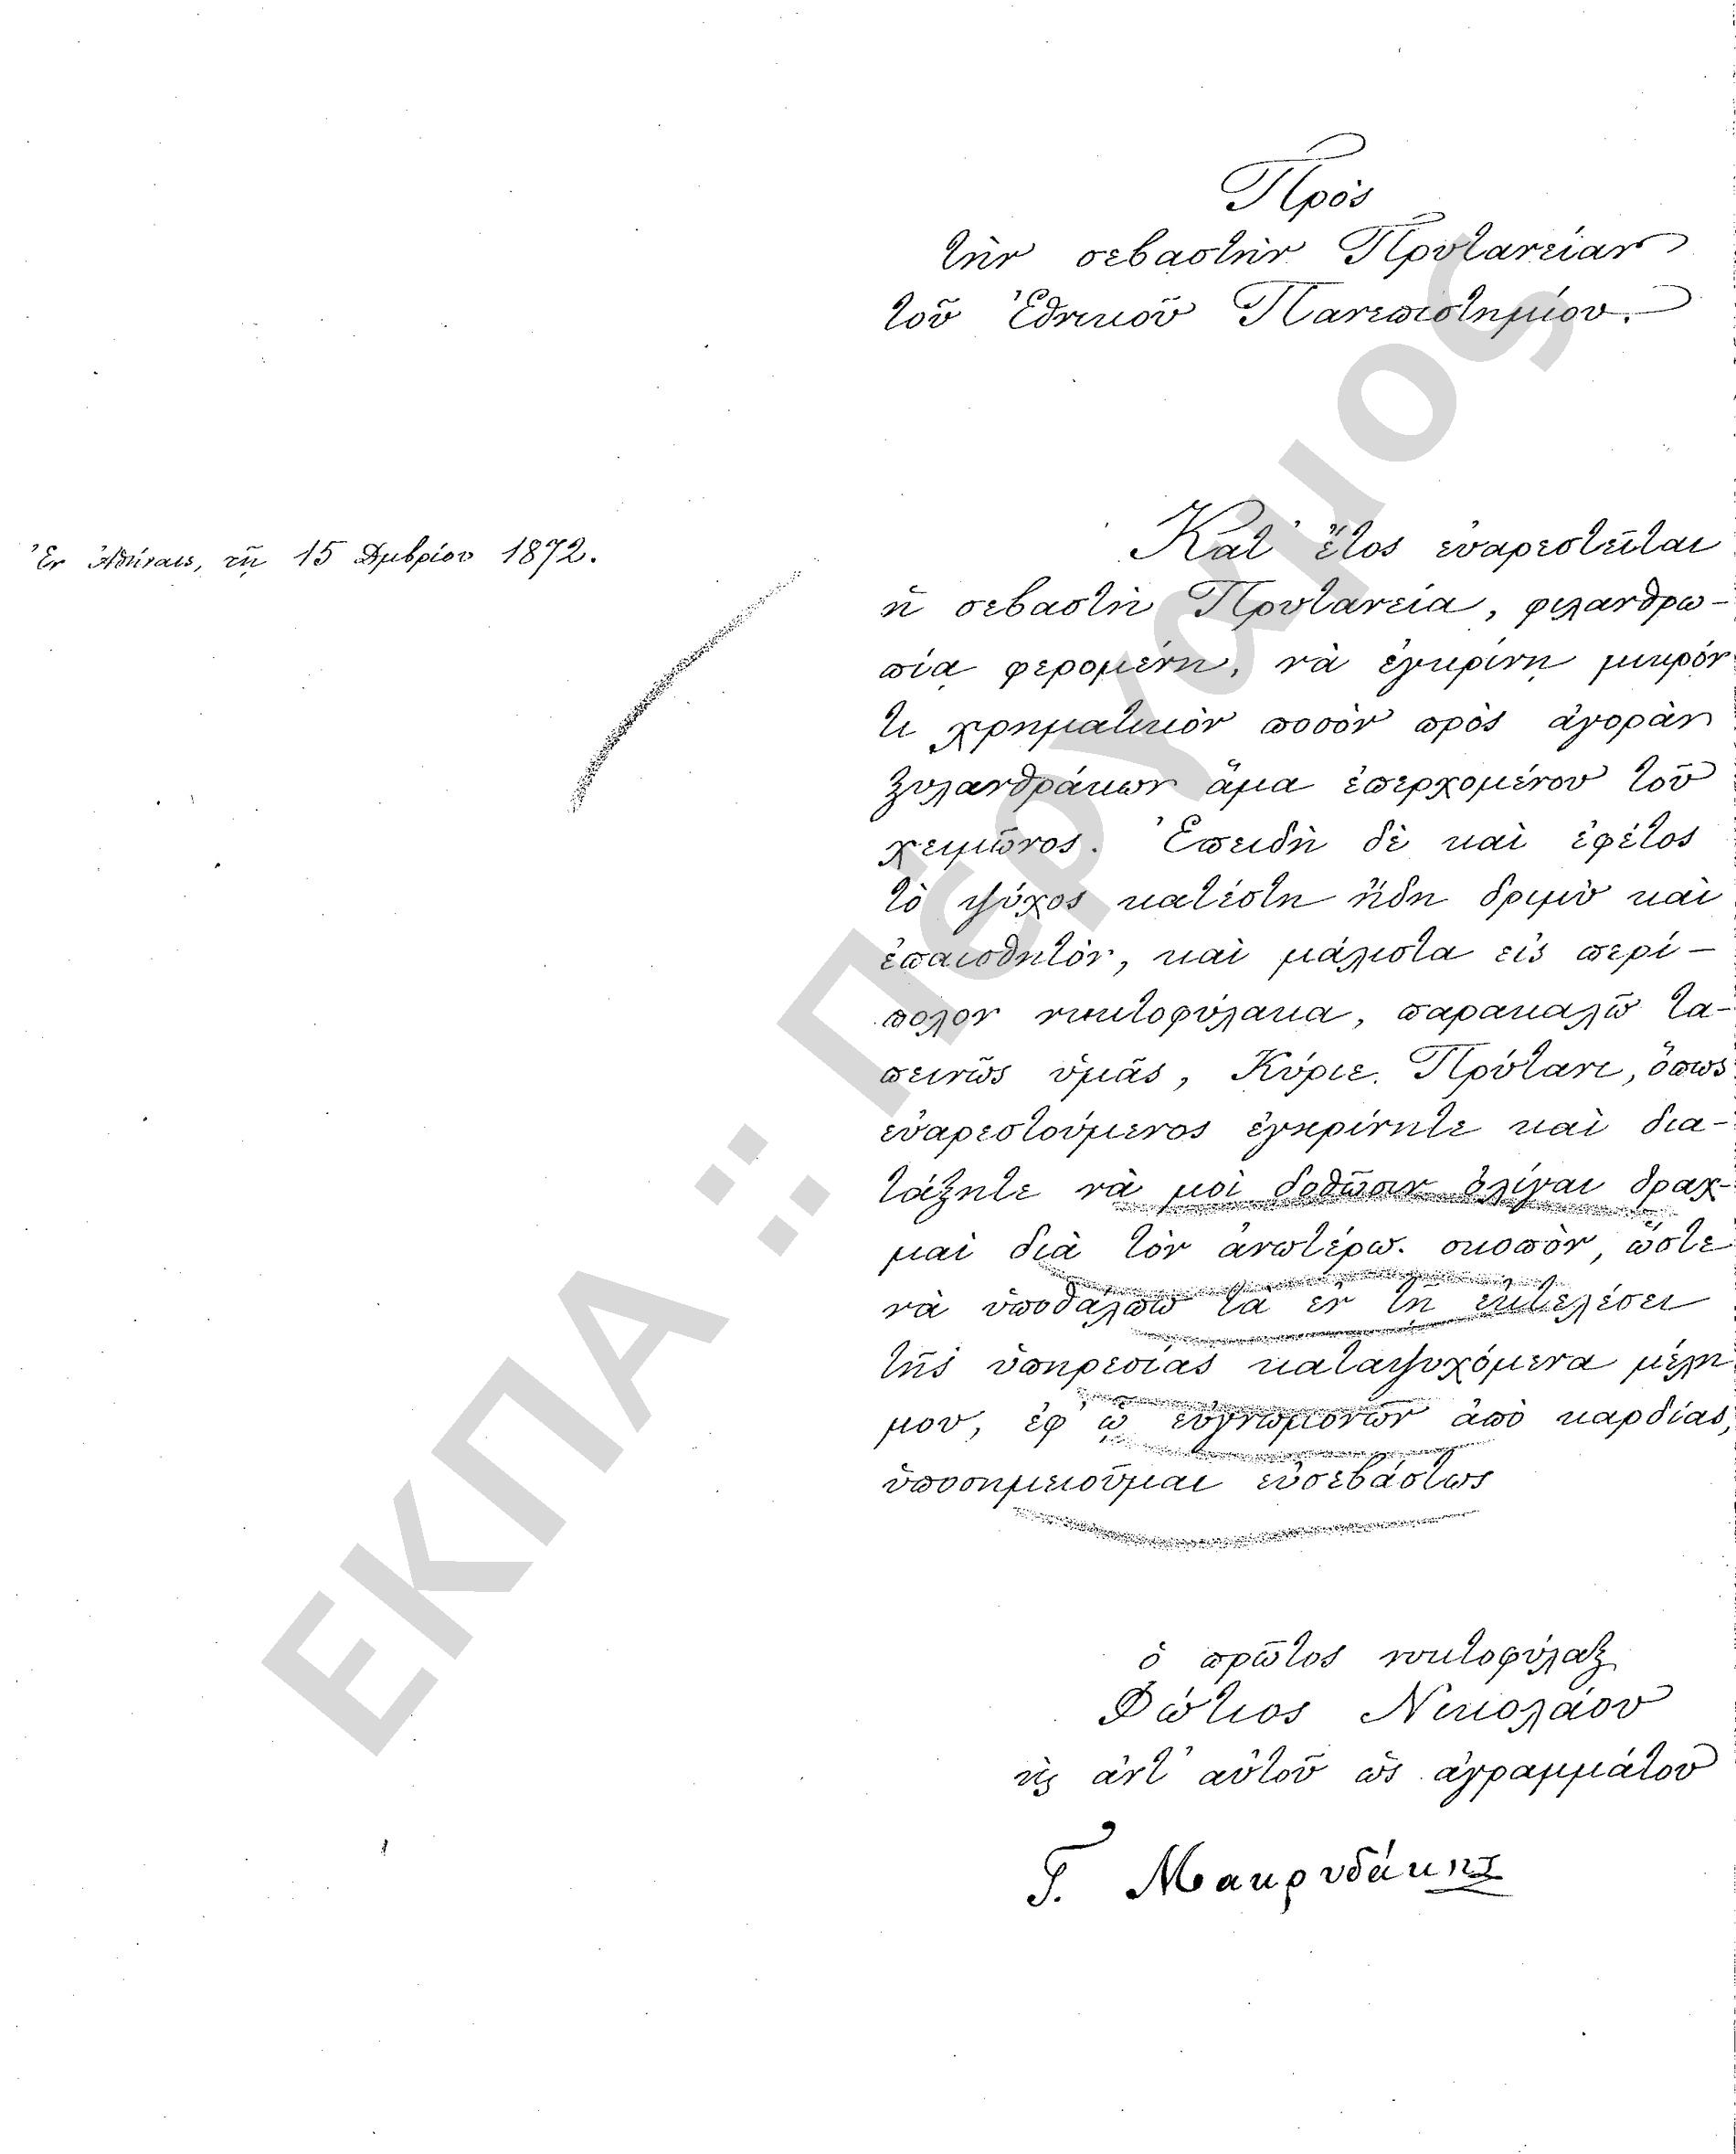 Πρὸς
τὴν σεβαστὴν Πρυτανείαν
τοῦ Ἐθνικοῦ Πανεπιστημίου.
Ἐν Ἀθήναις, τῇ 15 Δμβρίου 1872.
Κατ' ἔτος εὐαρεστεῖται
ἡ σεβαστὴ Πρυτανεία, φιλανθρω-
πίᾳ φερομένη, νὰ ἐγκρίνῃ μικρόν
τι χρηματικὸν ποσὸν πρὸς ἀγορὰν
ξυλανθράκων ἅμα ἐπερχομένου τοῦ
χειμῶνος. Ἐπειδὴ δὲ καὶ ἐφέτος
τὸ ψύχος κατέστη ἤδη δριμὺ καὶ
ἐπαισθητὸν, καὶ μάλιστα εἰς περί-
πολον νυκτοφύλακα, παρακαλῶ τα-
πεινῶς ὑμᾶς, Κύριε Πρύτανι, ὅπως
εὐαρεστούμενος ἐγκρίνητε καὶ δια-
τάξητε νὰ μοὶ δοθῶσιν ὀλίγαι δραχ-
μαὶ διὰ τὸν ἀνωτέρω σκοπὸν, ὥστε
νὰ ὑποθάλπω τὰ ἐν τῇ ἐκτελέσει
τῆς ὑπηρεσίας καταψυχόμενα μέλη
μου, ἐφ' ᾧ εὐγνωμονῶν ἀπὸ καρδίας,
ὑποσημειοῦμαι εὐσεβάστως
ὁ πρῶτος νυκτοφύλαξ
Φώτιος Νικολάου
κς ἀντ' αὐτοῦ ὡς ἀγραμμάτου
Γ. Μακρυδάκης
ΕΚΠΑ :: Πέργαμος